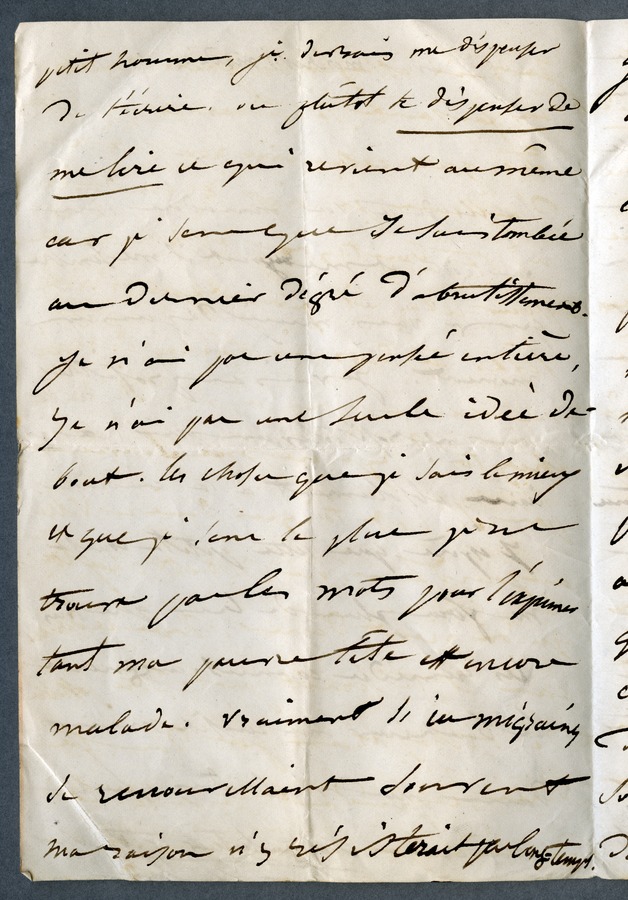 petit homme, je devrais me dispenser
de t'écrire, ou plutôt te dispenser de
me lire ce qui revient au même
car je sens que je suis tombée
au dernier dégré d'abrutissement.
Je n'ai pas une pensée entière,
Je n'ai pas une seule idée de-
bout. Les choses que je sais le mieux
et que je sens le plus je ne
trouve pas les mots pour l'exprimer
tant ma pauvre tête est encore
malade. Vraiment si ces migraines
se renouvellaient souvent
ma raison n'y résisterait pas longtemps.